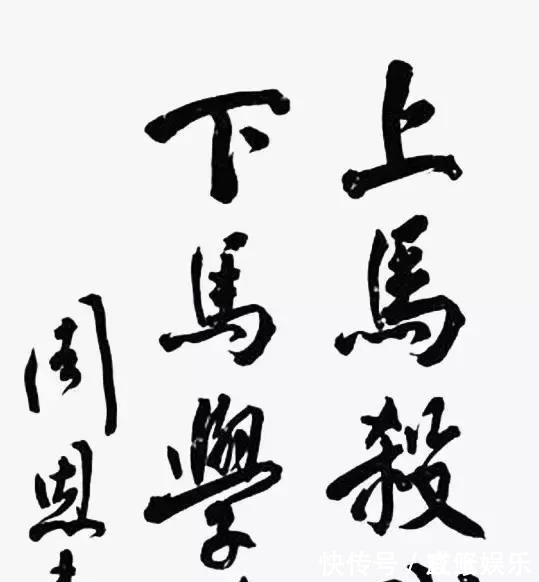 上馬殺
下馬學
周恩
快传号/宣修娱乐